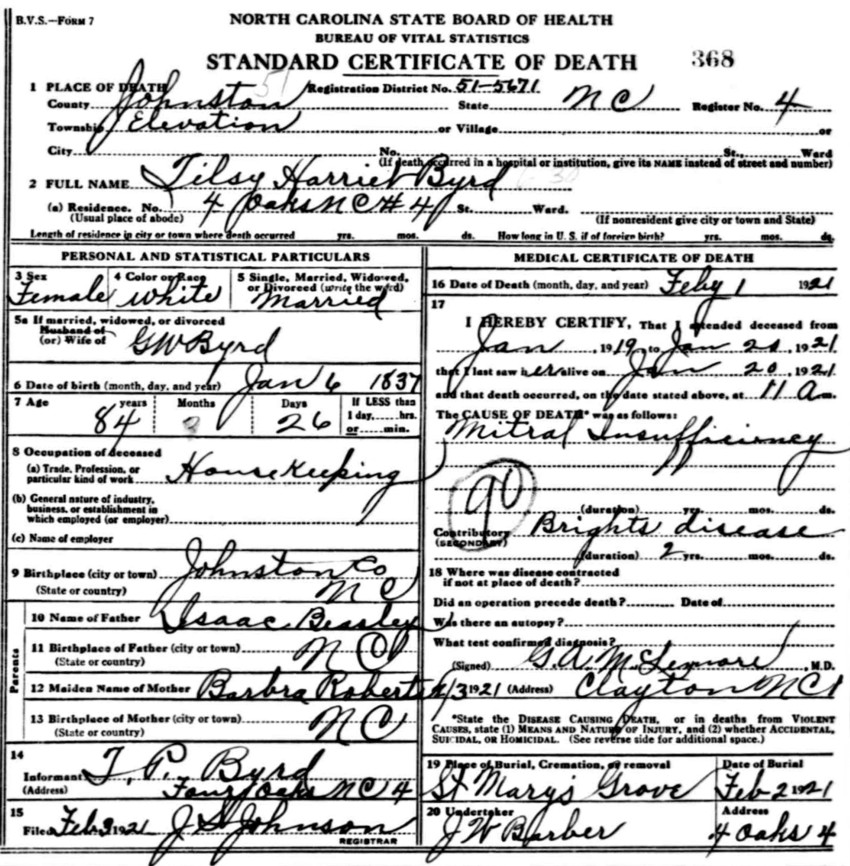 B.V.S.—FORM 7
NORTH CAROLINA STATE BOARD OF HEALTH
BUREAU OF VITAL STATISTICS
STANDARD CERTIFICATE OF DEATH 368
1 PLACE OF DEATH 51 Registration District No. 51-5671
County Johnston State N C Register No. 4
Township Elevation or Village or
City No. St., Ward
(If death occurred in a hospital or institution, give its NAME instead of street and number)
2 FULL NAME Tilsy Harriet Byrd
(a) Residence. No. 4 Oaks N C # 4 St. Ward.
(Usual place of abode) (If nonresident give city or town and State)
Length of residence in city or town where death occurred yrs. mos. ds. How long in U. S. if of foreign birth? yrs. mos. ds.
PERSONAL AND STATISTICAL PARTICULARS
3 Sex 4 Color or Race 5 Single, Married, Widowed,
or Divorced (write the word)
Female white Married
5a If married, widowed, or divorced
Husband of
(or) Wife of G W Byrd
6 Date of birth (month, day, and year) Jan 6 1837
7 Age years Months Days If LESS than
1 day,....hrs.
or....min.
84 26
8 Occupation of deceased
(a) Trade, Profession, or
particular kind of work Housekeeping
(b) General nature of industry,
business, or establishment in
which employed (or employer)
(c) Name of employer
9 Birthplace (city or town) Johnston Co
(State or country) N C
Parents
10 Name of Father Isaac Beasley
11 Birthplace of Father (city or town)
(State or country) N C
12 Maiden Name of Mother Barbra Roberts
13 Birthplace of Mother (city or town)
(State or country) N C
14
Informant T. P. Byrd
(Address) Four Oaks N C 4
15
Filed Feb 3 1921 J S Johnson
REGISTRAR
MEDICAL CERTIFICATE OF DEATH
16 Date of Death (month, day, and year) Feby 1 1921
17
I HEREBY CERTIFY, That I attended deceased from
Jan , 1919 to Jan 20 , 1921
that I last saw her alive on Jan 20 , 1921
and that death occurred, on the date stated above, at 11 A m.
The CAUSE OF DEATH* was as follows:
Mitral Insufficiency
90
(duration) yrs. mos. ds.
Contributory Brights disease
(SECONDARY)
(duration) 2 yrs. mos. ds.
18 Where was disease contracted
if not at place of death?
Did an operation precede death? Date of
Was there an autopsy?
What test confirmed diagnosis?
(Signed) G. A. McLemore , M.D.
2/3 1921 (Address) Clayton N C
*State the DISEASE CAUSING DEATH, or in deaths from VIOLENT
CAUSES, state (1) MEANS AND NATURE OF INJURY, and (2) whether ACCIDENTAL,
SUICIDAL, or HOMICIDAL. (See reverse side for additional space.)
19 Place of Burial, Cremation, or removal Date of Burial
St Mary's Grove Feb 2 1921
20 Undertaker Address
J W Barber 4 Oaks 4